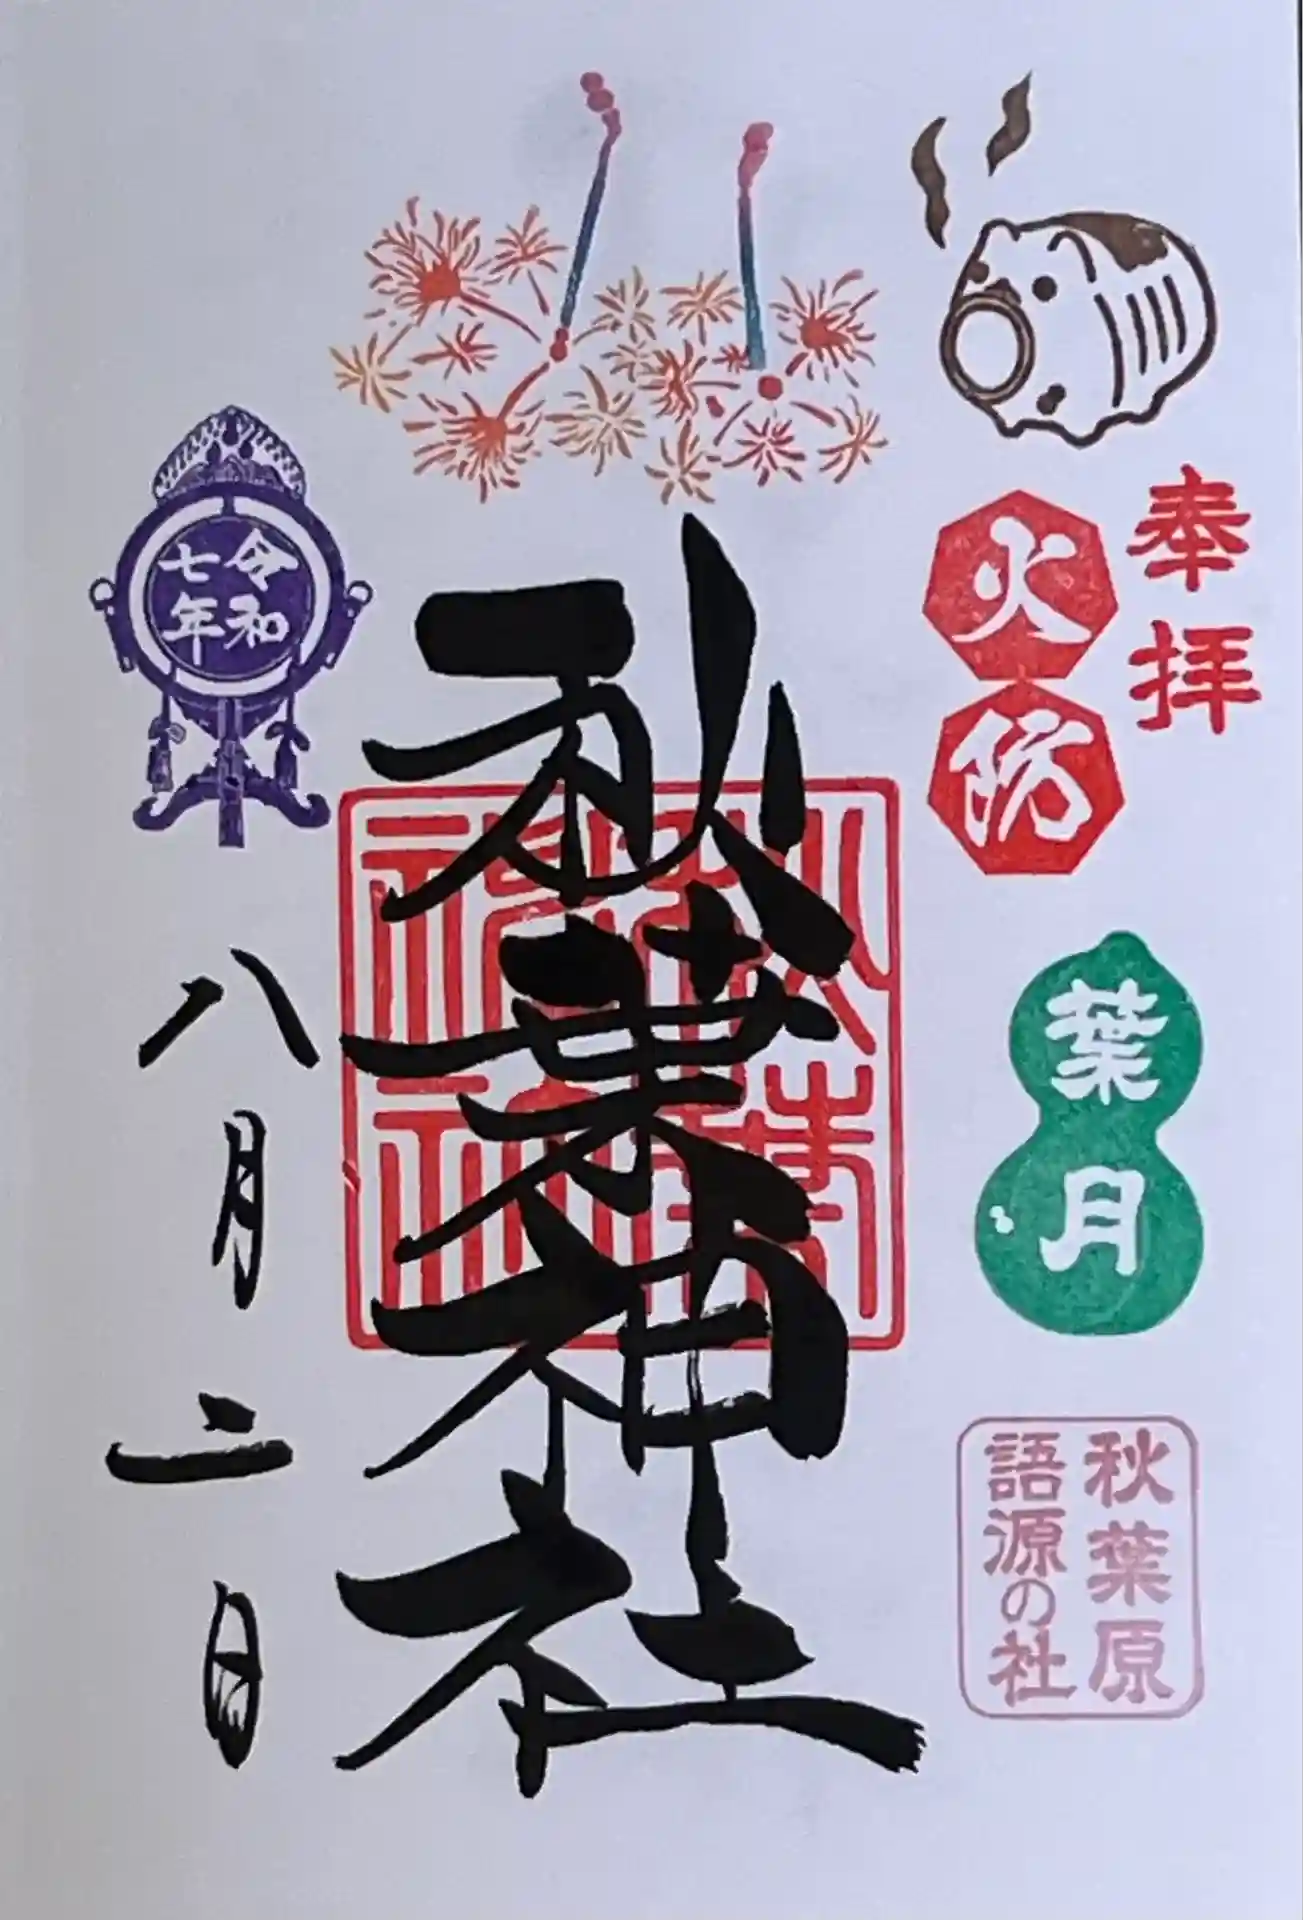 奉拝
火防
葉月
秋葉原
語源の社
秋葉神社
令和
七年
八月二日